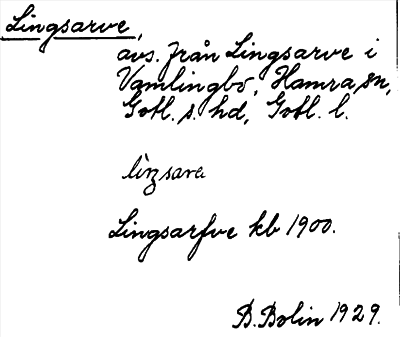 Lingsarve,
avs. från Lingsarve i
Vamlingbo, Hamra sn,
Gotl. s. hd, Gotl. l.
lìŋsarva
Lingsarfve kb 1900.
B. Bolin 1929.